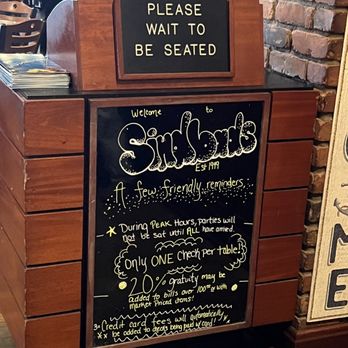 PLEASE
WAIT TO
BE SEATED
Welcome to
Sindbads
Est 1949
A few friendly reminders...
During PEAK Hours, parties will
not be sat until ALL have arrived.
Only ONE check per table!
20% gratuity may be
added to bills over 100 or with
market priced items!
Credit card fees will automatically
be added to checks being paid w/ card!